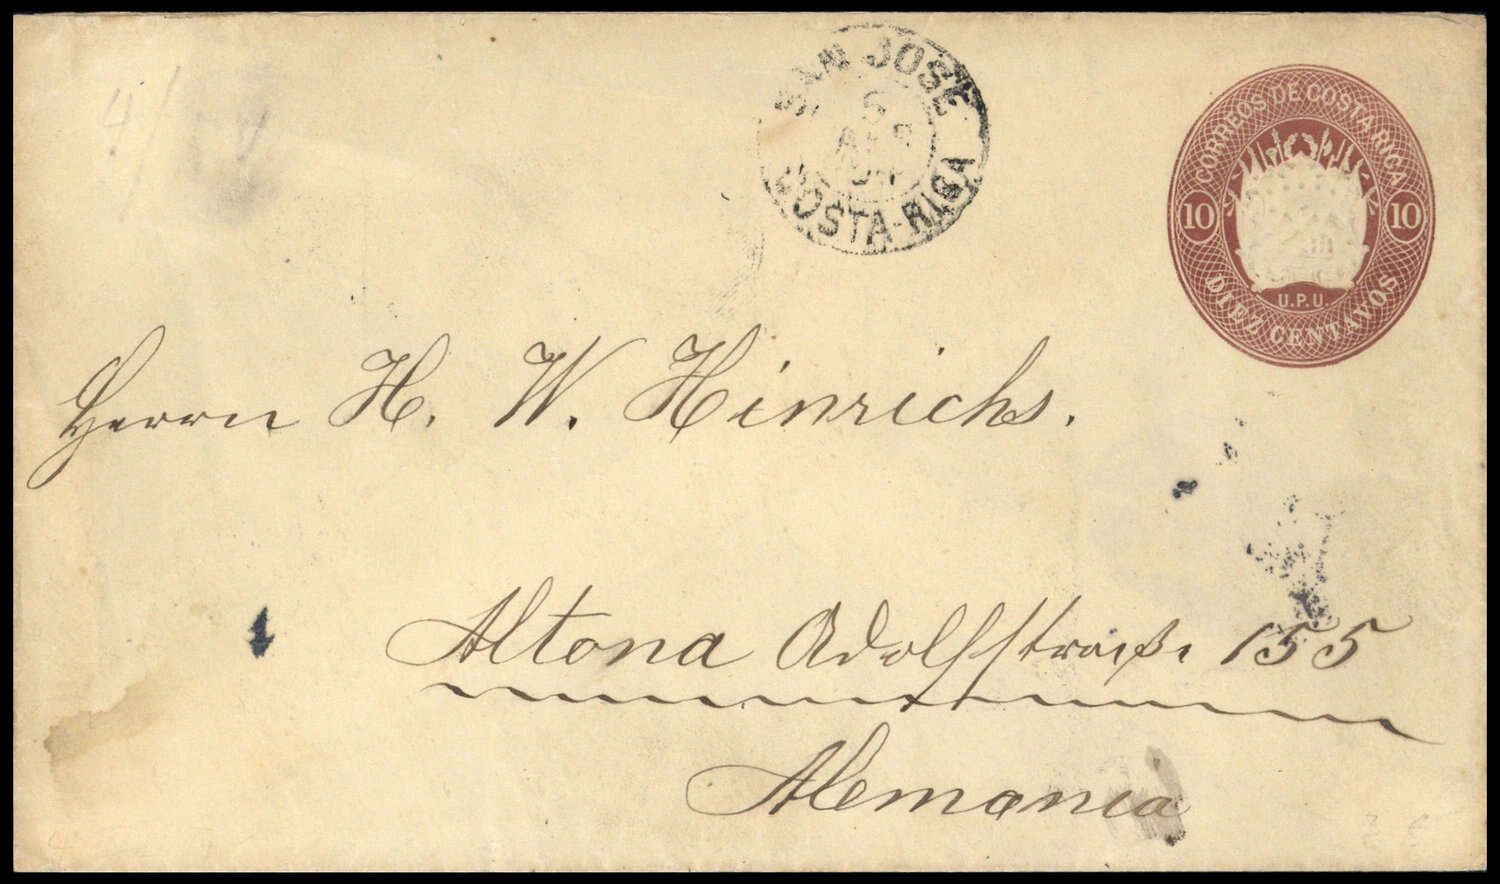 SAN JOSE
5
COSTA-RICA
CORREOS DE COSTA RICA
10 10
U.P.U.
DIEZ CENTAVOS
Herrn H. W. Hinrichs.
Altona Adolfstraße 155
Alemania